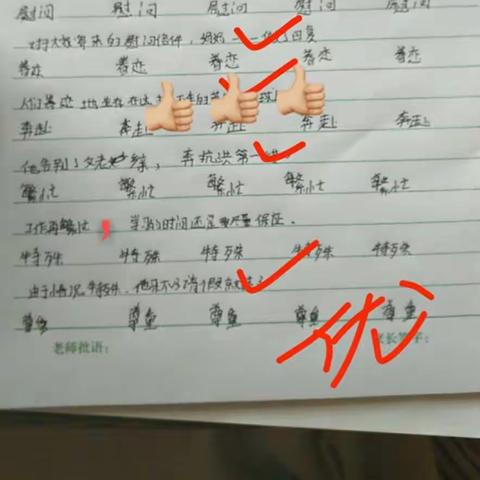 慰问 慰问 慰问 慰问 慰问
对于大家寄来的慰问信件，妈妈一一做了回复
眷恋 眷恋 眷恋 眷恋 眷恋
人们眷恋地生存在这
奔赴 奔赴 奔赴 奔赴 奔赴
他告别了父老乡亲，奔赴抗洪第一
繁忙 繁忙 繁忙 繁忙 繁忙
工作再繁忙，学习的时间还是要尽量保证。
特殊 特殊 特殊 特殊 特殊
由于情况特殊，他不得不请个假
章鱼 章鱼 章鱼 章鱼 章鱼
优
老师批语： 家长签字：